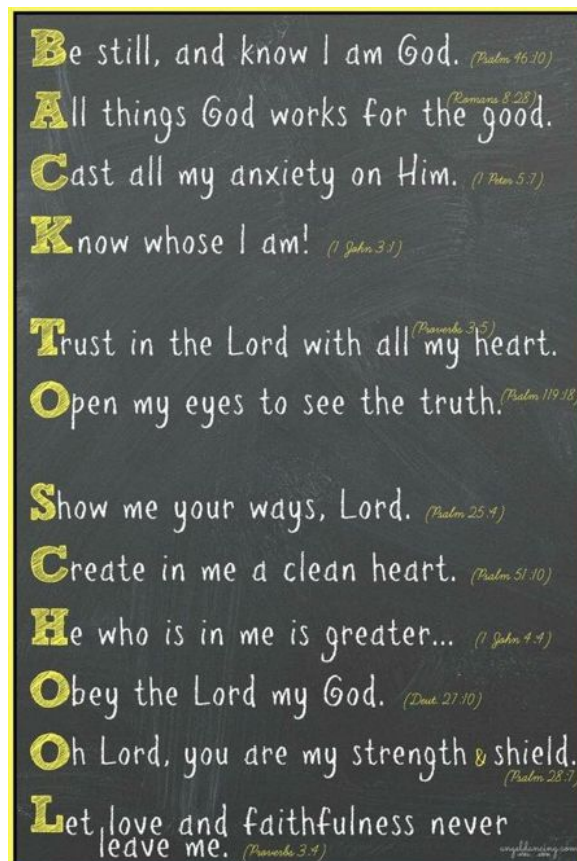 Be still, and know I am God. (Psalm 46:10)
(Romans 8:28)
All things God works for the good.
Cast all my anxiety on Him. (1 Peter 5:7)
Know whose I am! (1 John 3:1)
(Proverbs 3:5)
Trust in the Lord with all my heart.
Open my eyes to see the truth. (Psalm 119:18)
Show me your ways, Lord. (Psalm 25:4)
Create in me a clean heart. (Psalm 51:10)
He who is in me is greater... (1 John 4:4)
Obey the Lord my God. (Deut. 27:10)
Oh Lord, you are my strength & shield.
(Psalm 28:7)
Let love and faithfulness never
leave me. (Proverbs 3:4)